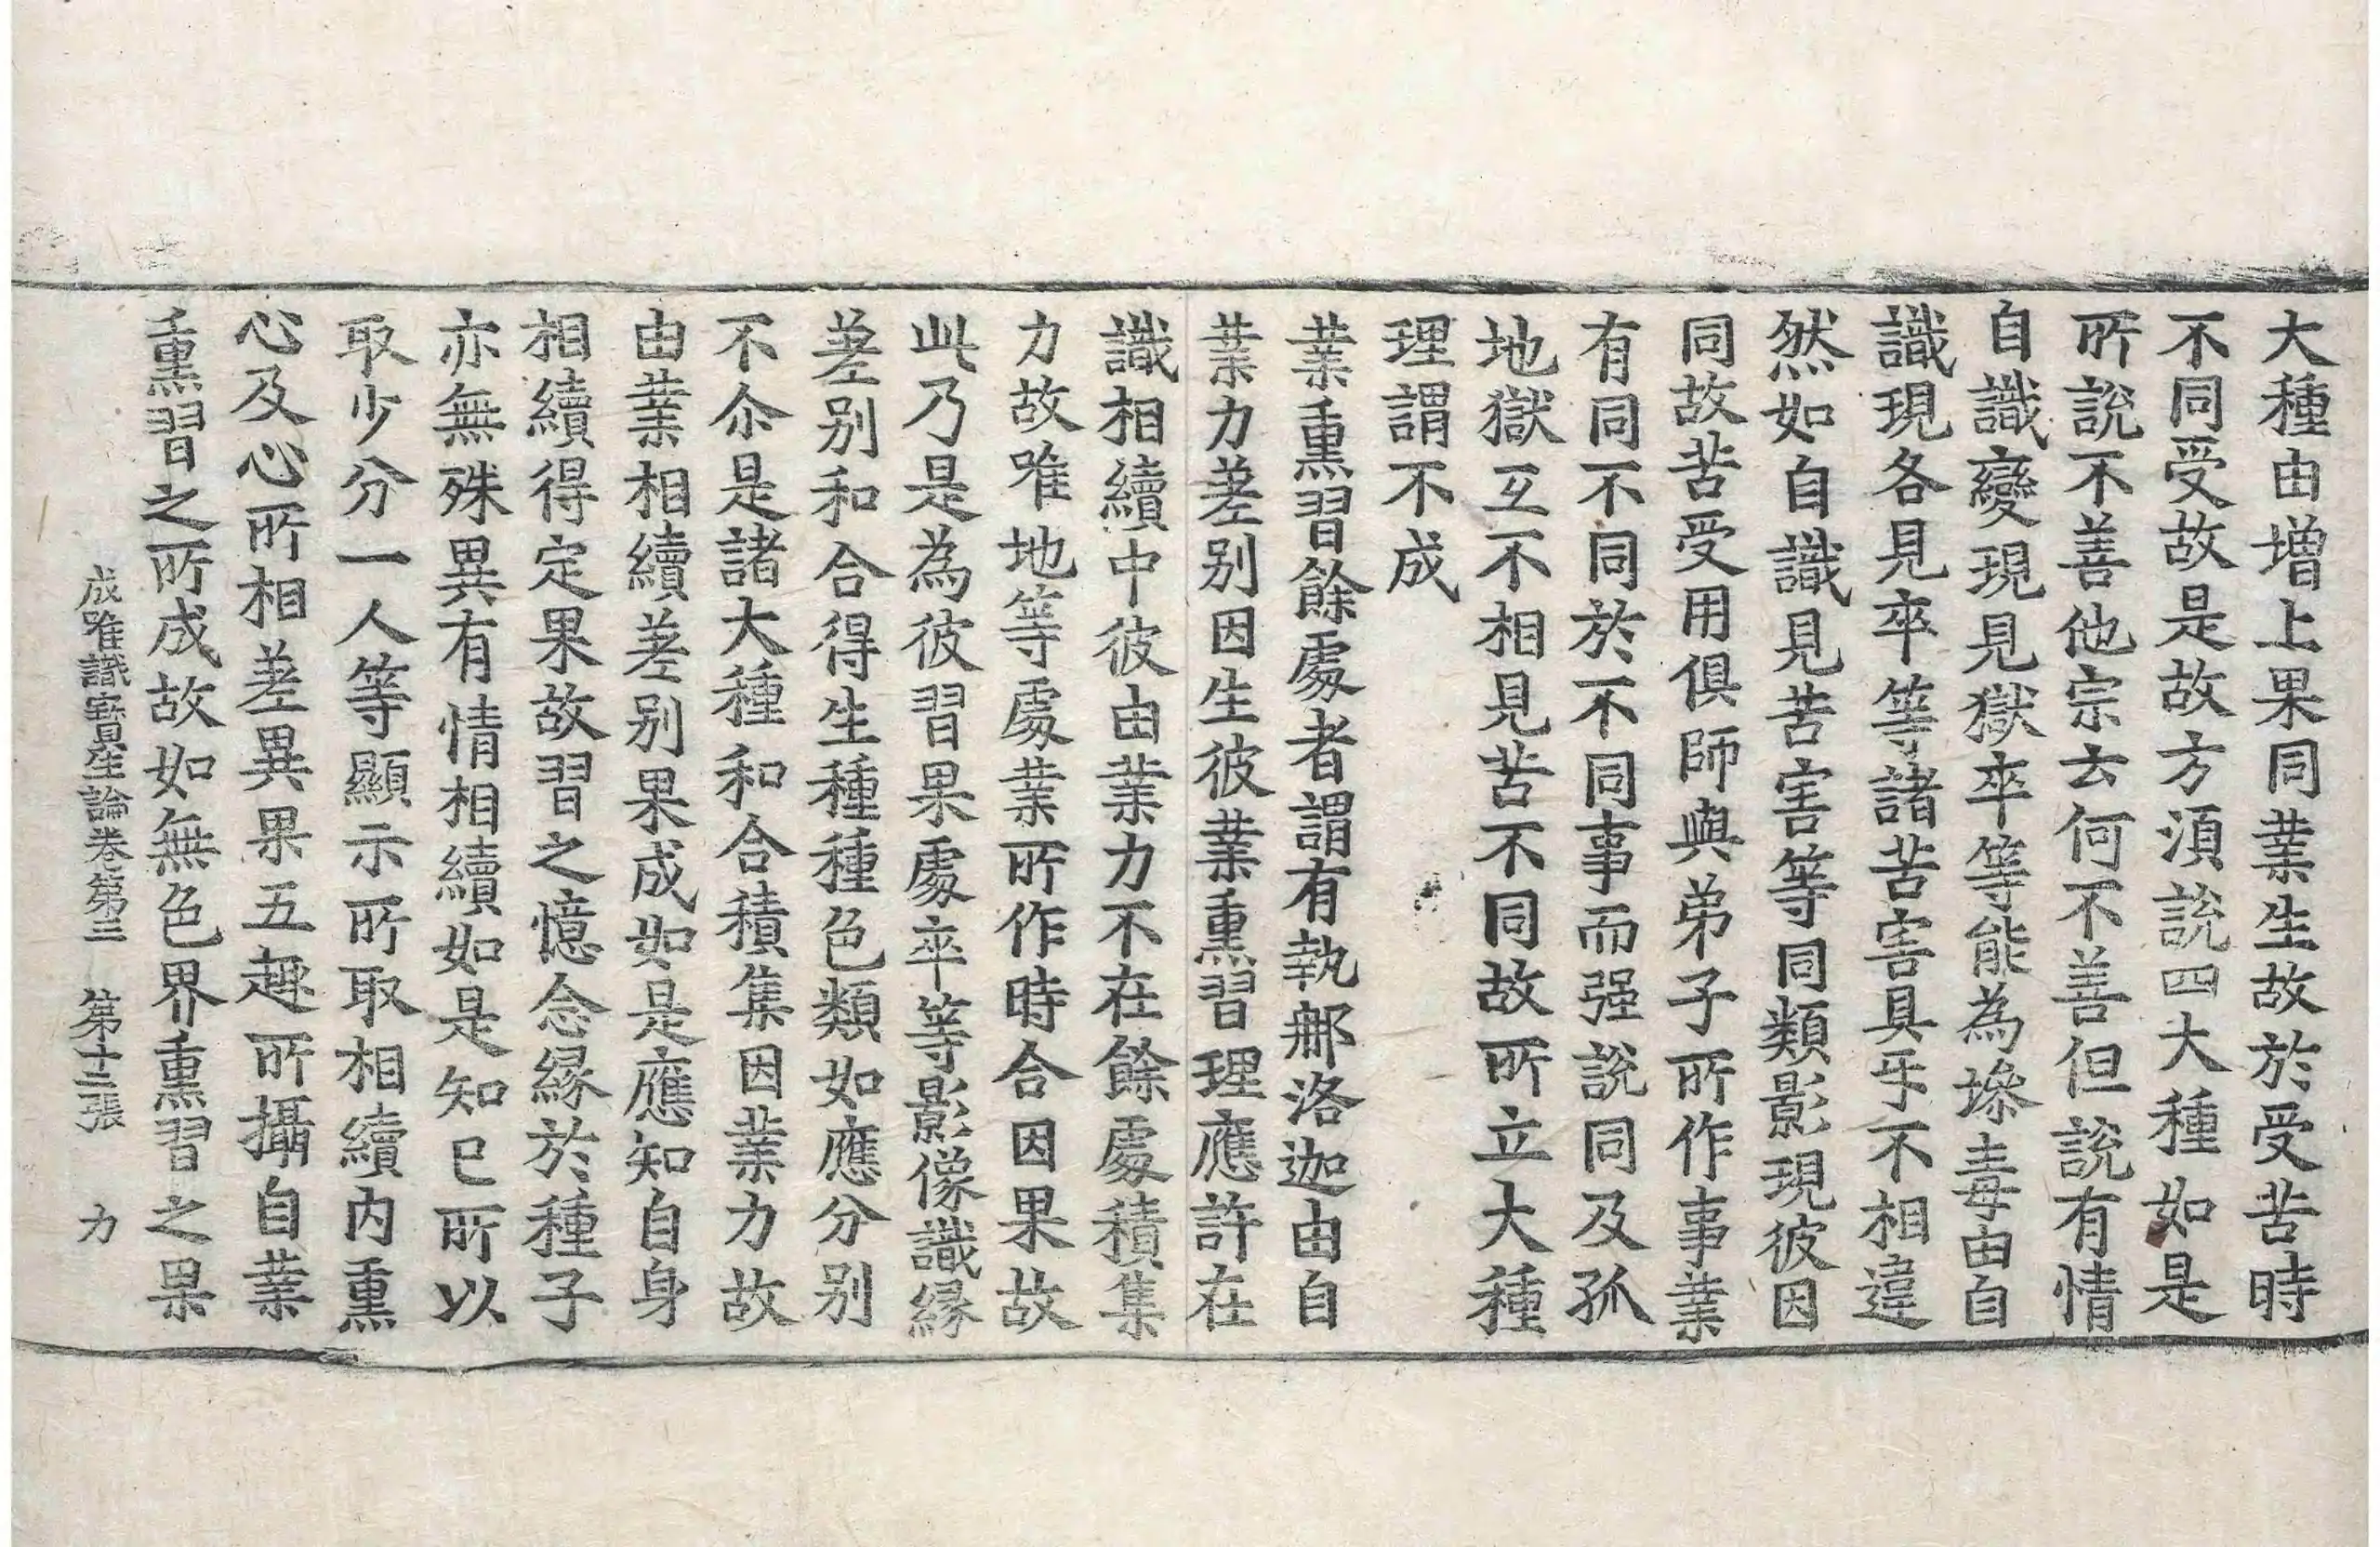 大種由增上果同業生故於受苦時
不同受故是故方須說四大種如是
所說不善他宗去何不善但說有情
自識變現見獄卒等能為㙁毒由自
識現各見卒等諸苦害具㸦不相違
然如自識見苦害等同類影現彼因
同故苦受用俱師與弟子所作事業
有同不同於不同事而强說同及孤
地獄互不相見苦不同故所立大種
理謂不成
業熏習餘處者謂有執那洛迦由自
業力差別因生彼業熏習理應許在
識相續中彼由業力不在餘處積集
力故唯地等處業所作時合因果故
此乃是為彼習果處卒等影像識緣
差別和合得生種種色類如應分別
不尒是諸大種和合積集因業力故
由業相續差別果成如是應知自身
相續得定果故習之憶念緣於種子
亦無殊異有情相續如是知已所以
取少分一人等顯示所取相續內熏
心及心所相差異果五趣所攝自業
熏習之所成故如無色界熏習之果
成唯識寶生論卷第三　第十二張　力